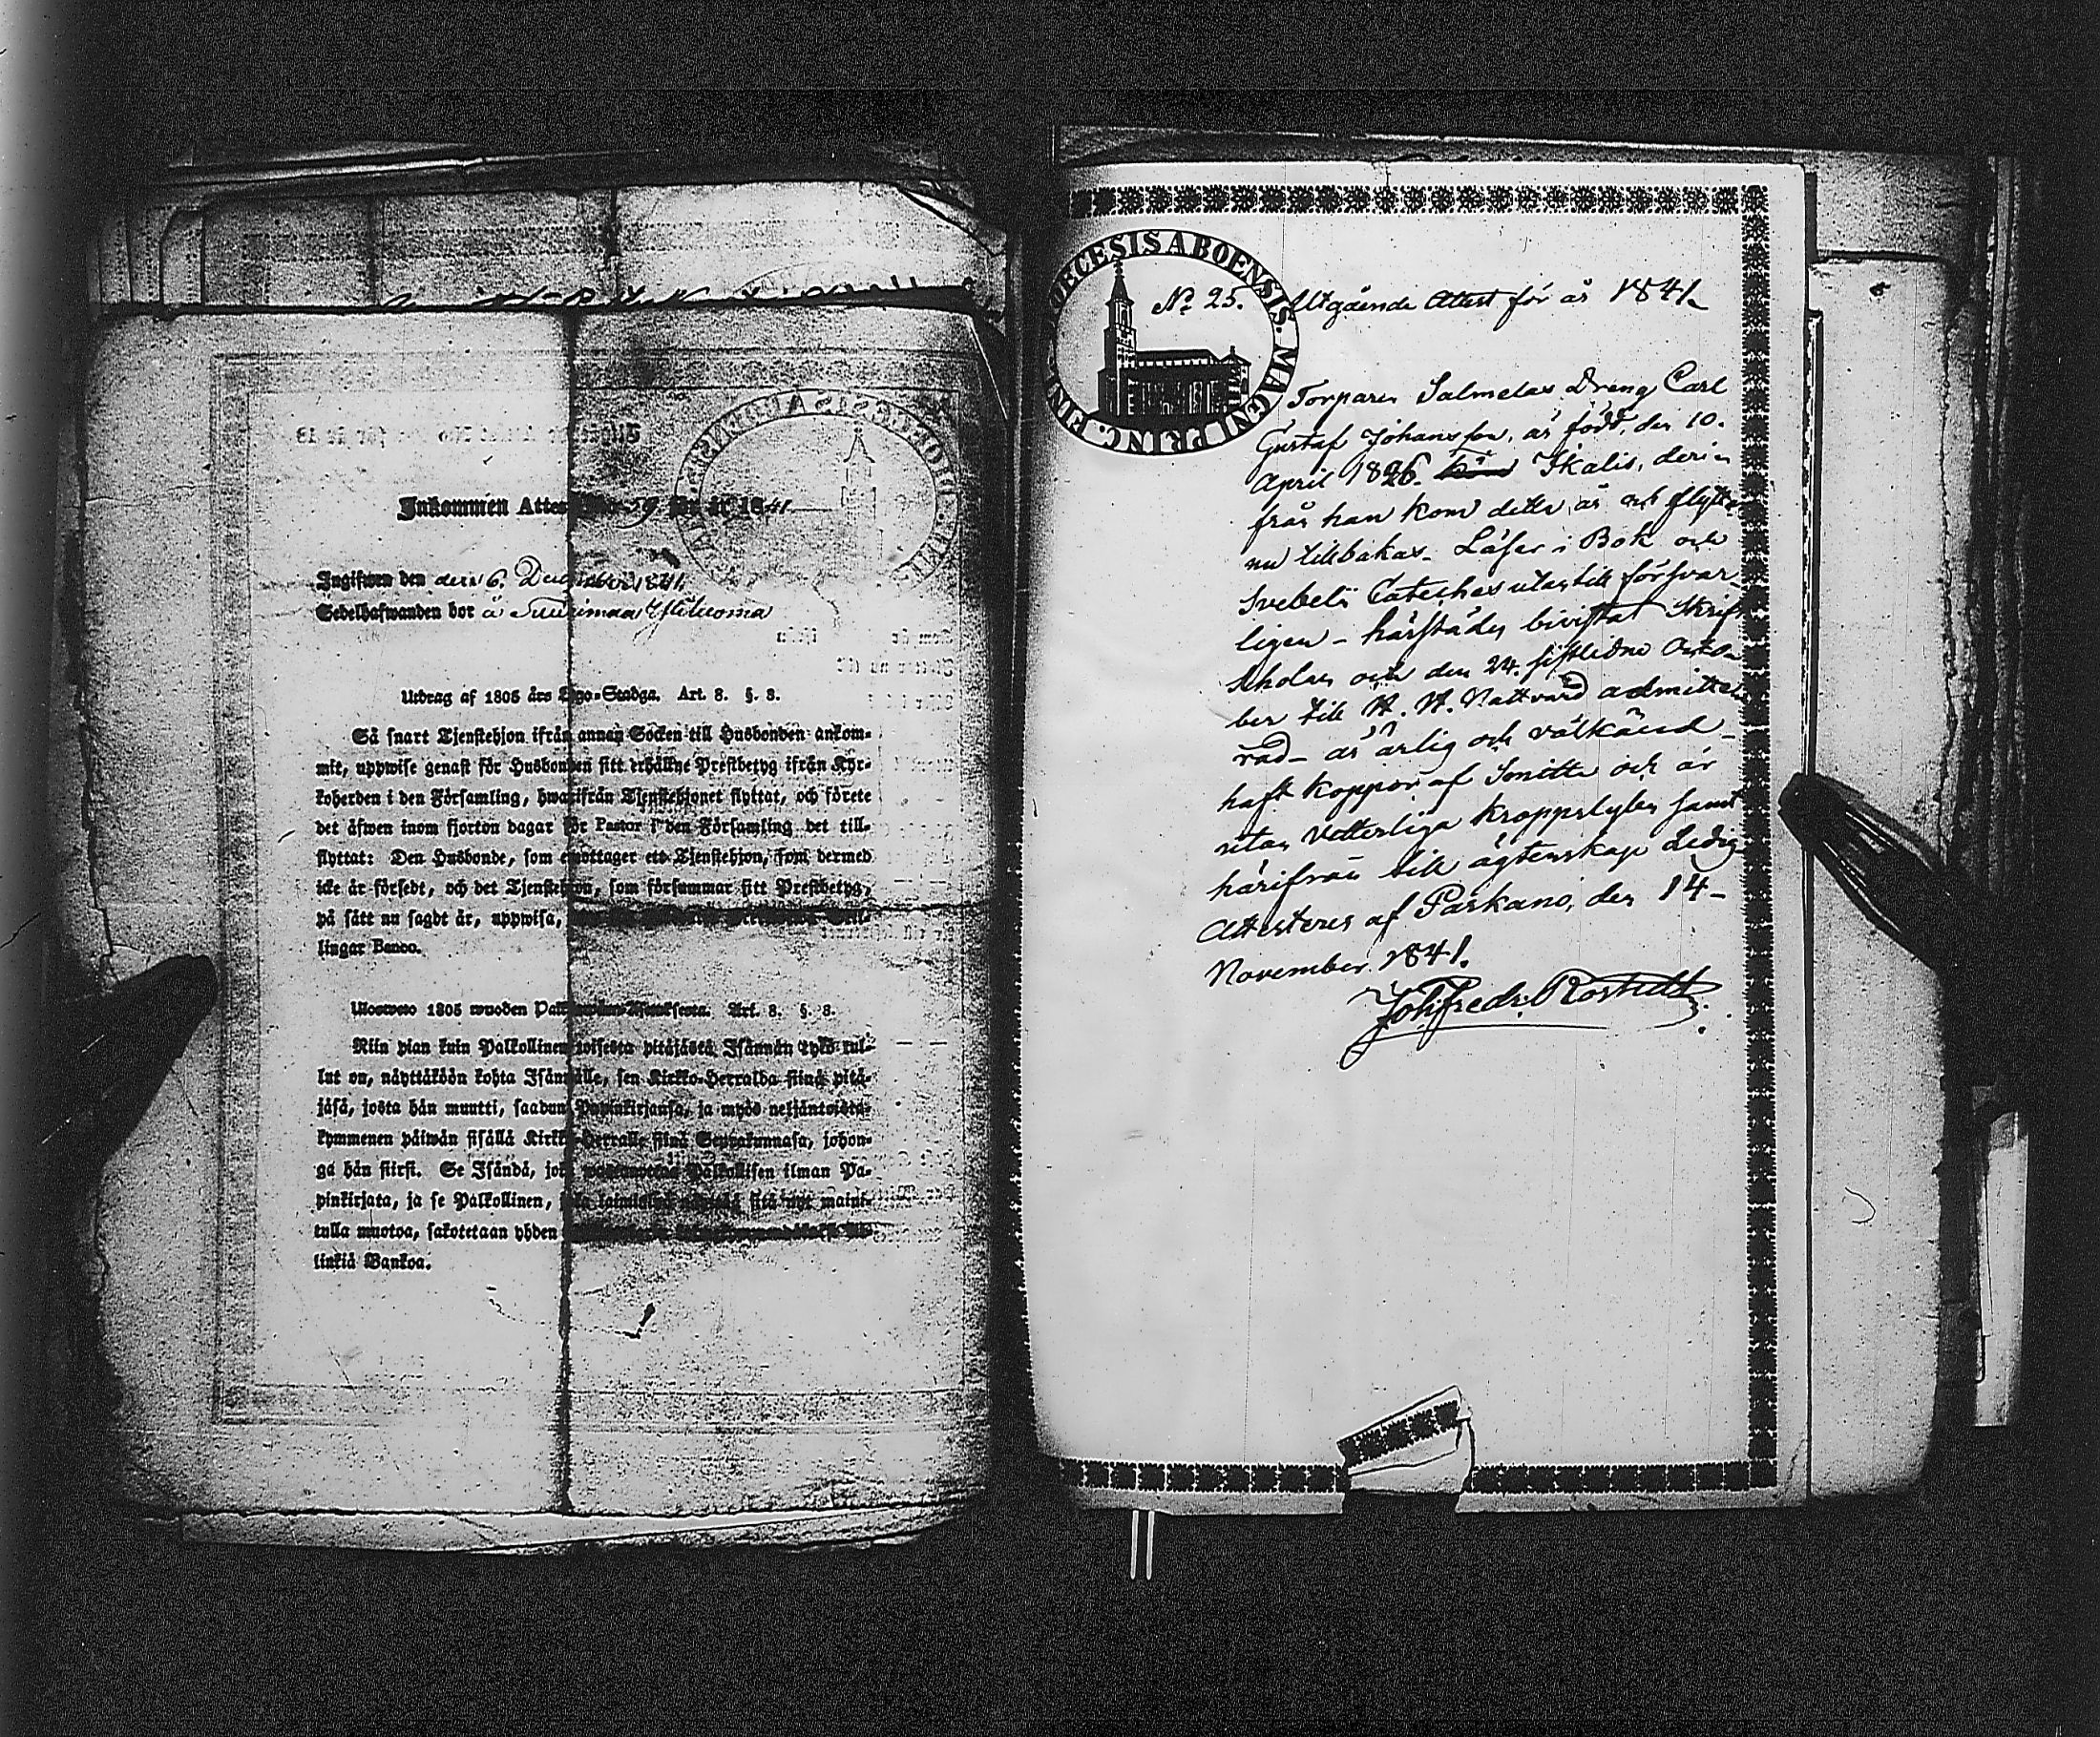 Inkommen Attest No 59 för år 1841
Ingifwen den den 6. December 1841.
Sedelhafwanden bor å
Utdrag af 1805 års Lego-Stadga. Art. 8. §. 8.
Så snart Tjenstehjon ifrån annan Socken till Husbonden ankom-
mit, uppwise genast för Husbonden sitt erhållne Prestbetyg ifrån Kyr-
koherden i den Församling, hwarifrån Tjenstehjonet flyttat, och förete
det äfwen inom fjorton dagar för Pastor i den Församling det till-
flyttat: Den Husbonde, som emottager ett Tjenstehjon, som dermed
icke är försedt, och det Tjenstehjon, som försummar sitt Prestbetyg,
på sätt nu sagdt är, uppwisa,
lingar Banco.
Ulosweto 1805 wuoden Art. 8. §. 8.
Niin pian kuin Palkollinen toisesta pitäjästä Isännän tykö tul-
lut on, näyttäköön kohta Isännälle, sen Kirkko-Herralda siinä pitä-
jäsä, josta hän muutti, saadun Papinkirjansa, ja myös neljäntoista-
kymmenen päiwän sisällä Kirkko-Herralle siinä Seurakunnasa, johon-
ga hän siirsi. Se Isändä, joka Palkollisen ilman Pa-
pinkirjata, ja se Palkollinen, joka laiminlyö näyttää sitä nyt maini-
tulla muotoa, sakotetaan yhden
linkiä Bankoa.
DIOECESIS ABOENSIS. MAGNI PRINC. FINL
No 25. Utgående Attest för år 1841.
Torparen Salmelas Dreng Carl
Gustaf Johansson, är född, den 10.
April 1826. Ikalis, deri-
från han kom detta år och flyttar
nu tillbakas. Läser i Bok och
Svebelii Cateches utantill försvar-
ligen - härstädes bivistat Skrift
skolan och den 24. sistledne Octo-
ber till H. H. Nattvard admitte-
rad - är ärlig och välkänd -
haft koppor af Smitta och är
utan vetterliga kroppslyten samt
härifrån till ägtenskap Ledig
Attesteres af Parkano, den 14-
November 1841.
Joh. Fredr. Rostedt